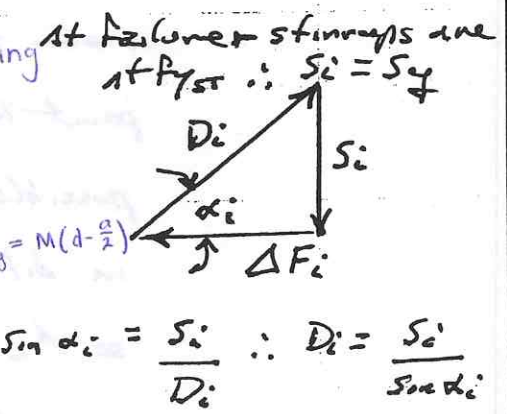 At failure stirrups are
ing
at fyst ∴ Si = Sy
Di
Si
αi
= M(d-a/2)
ΔFi
Sin αi = Si/Di ∴ Di = Si/Sin αi